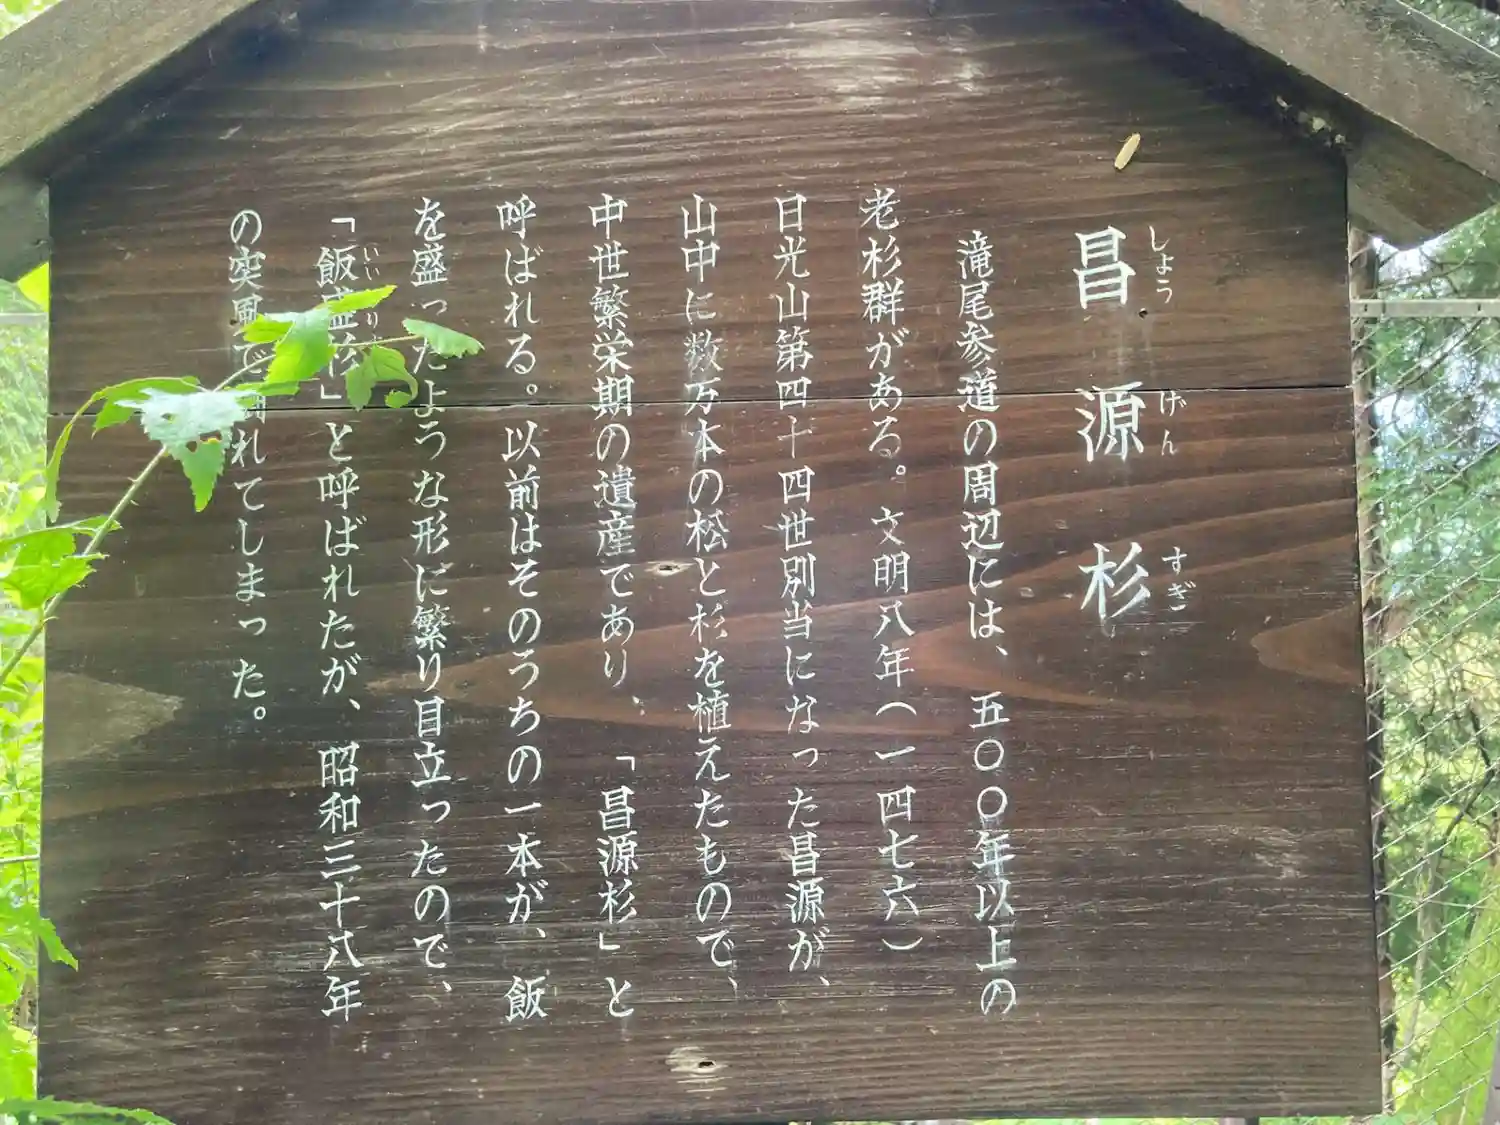 昌源杉
しょうげんすぎ
滝尾参道の周辺には、五〇〇年以上の
老杉群がある。文明八年(一四七六)
日光山第四十四世別当になった昌源が、
山中に数万本の松と杉を植えたもので、
中世繁栄期の遺産であり、「昌源杉」と
呼ばれる。以前はそのうちの一本が、飯
を盛ったような形に繁り目立ったので、
「飯盛杉」と呼ばれたが、昭和三十八年
の突風で れてしまった。